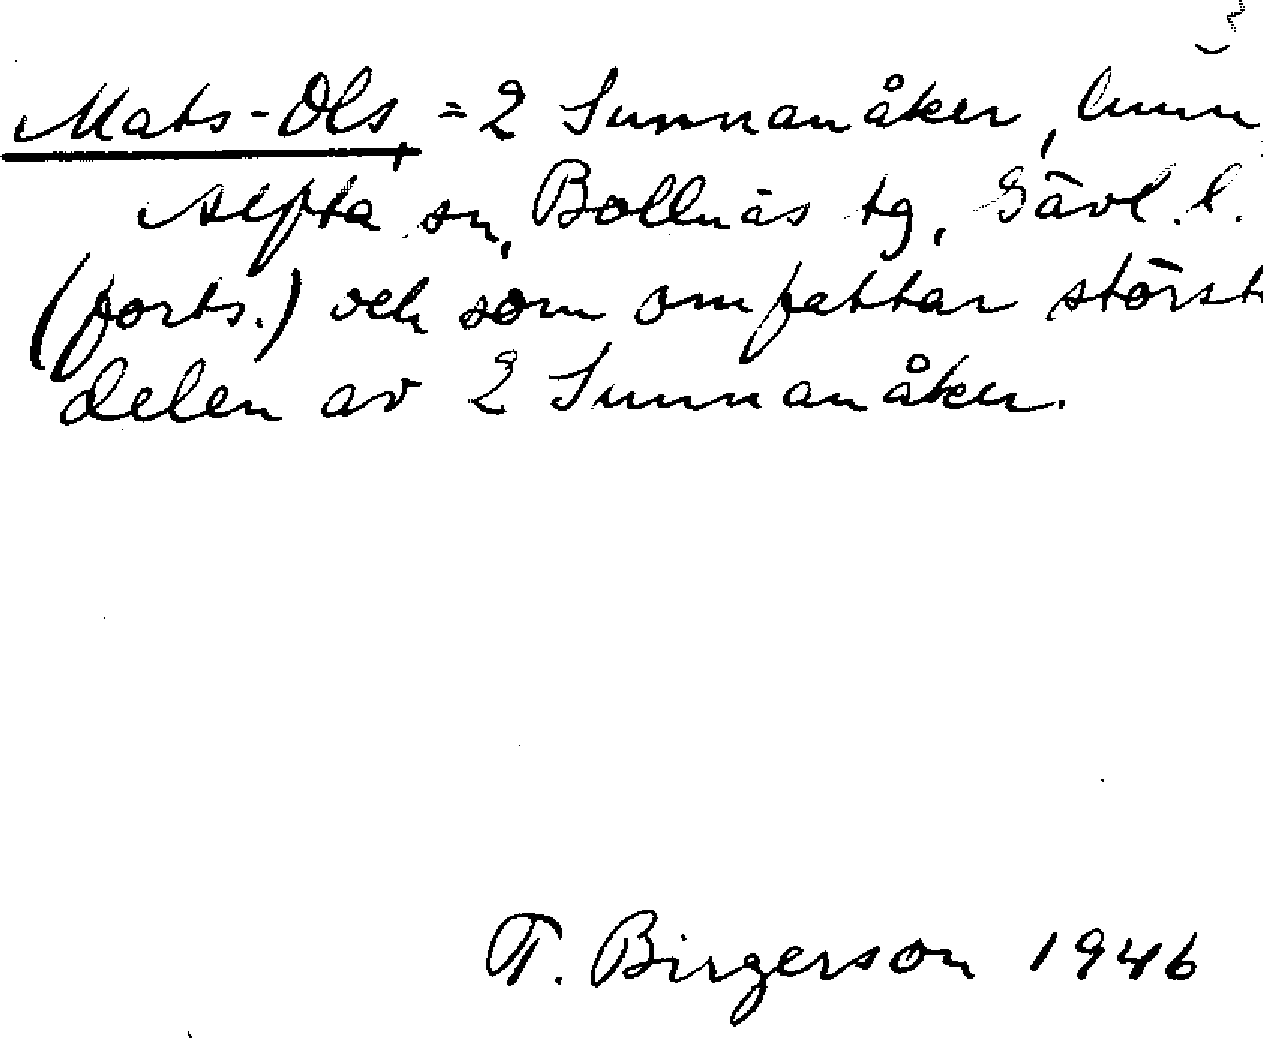 Mats-Ols, = 2 Sunnanåker, hmn
Alfta sn, Bollnäs tg, Gävl. l.
(forts.) och som omfattar störst
delen av 2 Sunnanåker.
T. Birgerson 1946